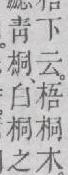 梧下云。梧桐木
青桐、白桐之